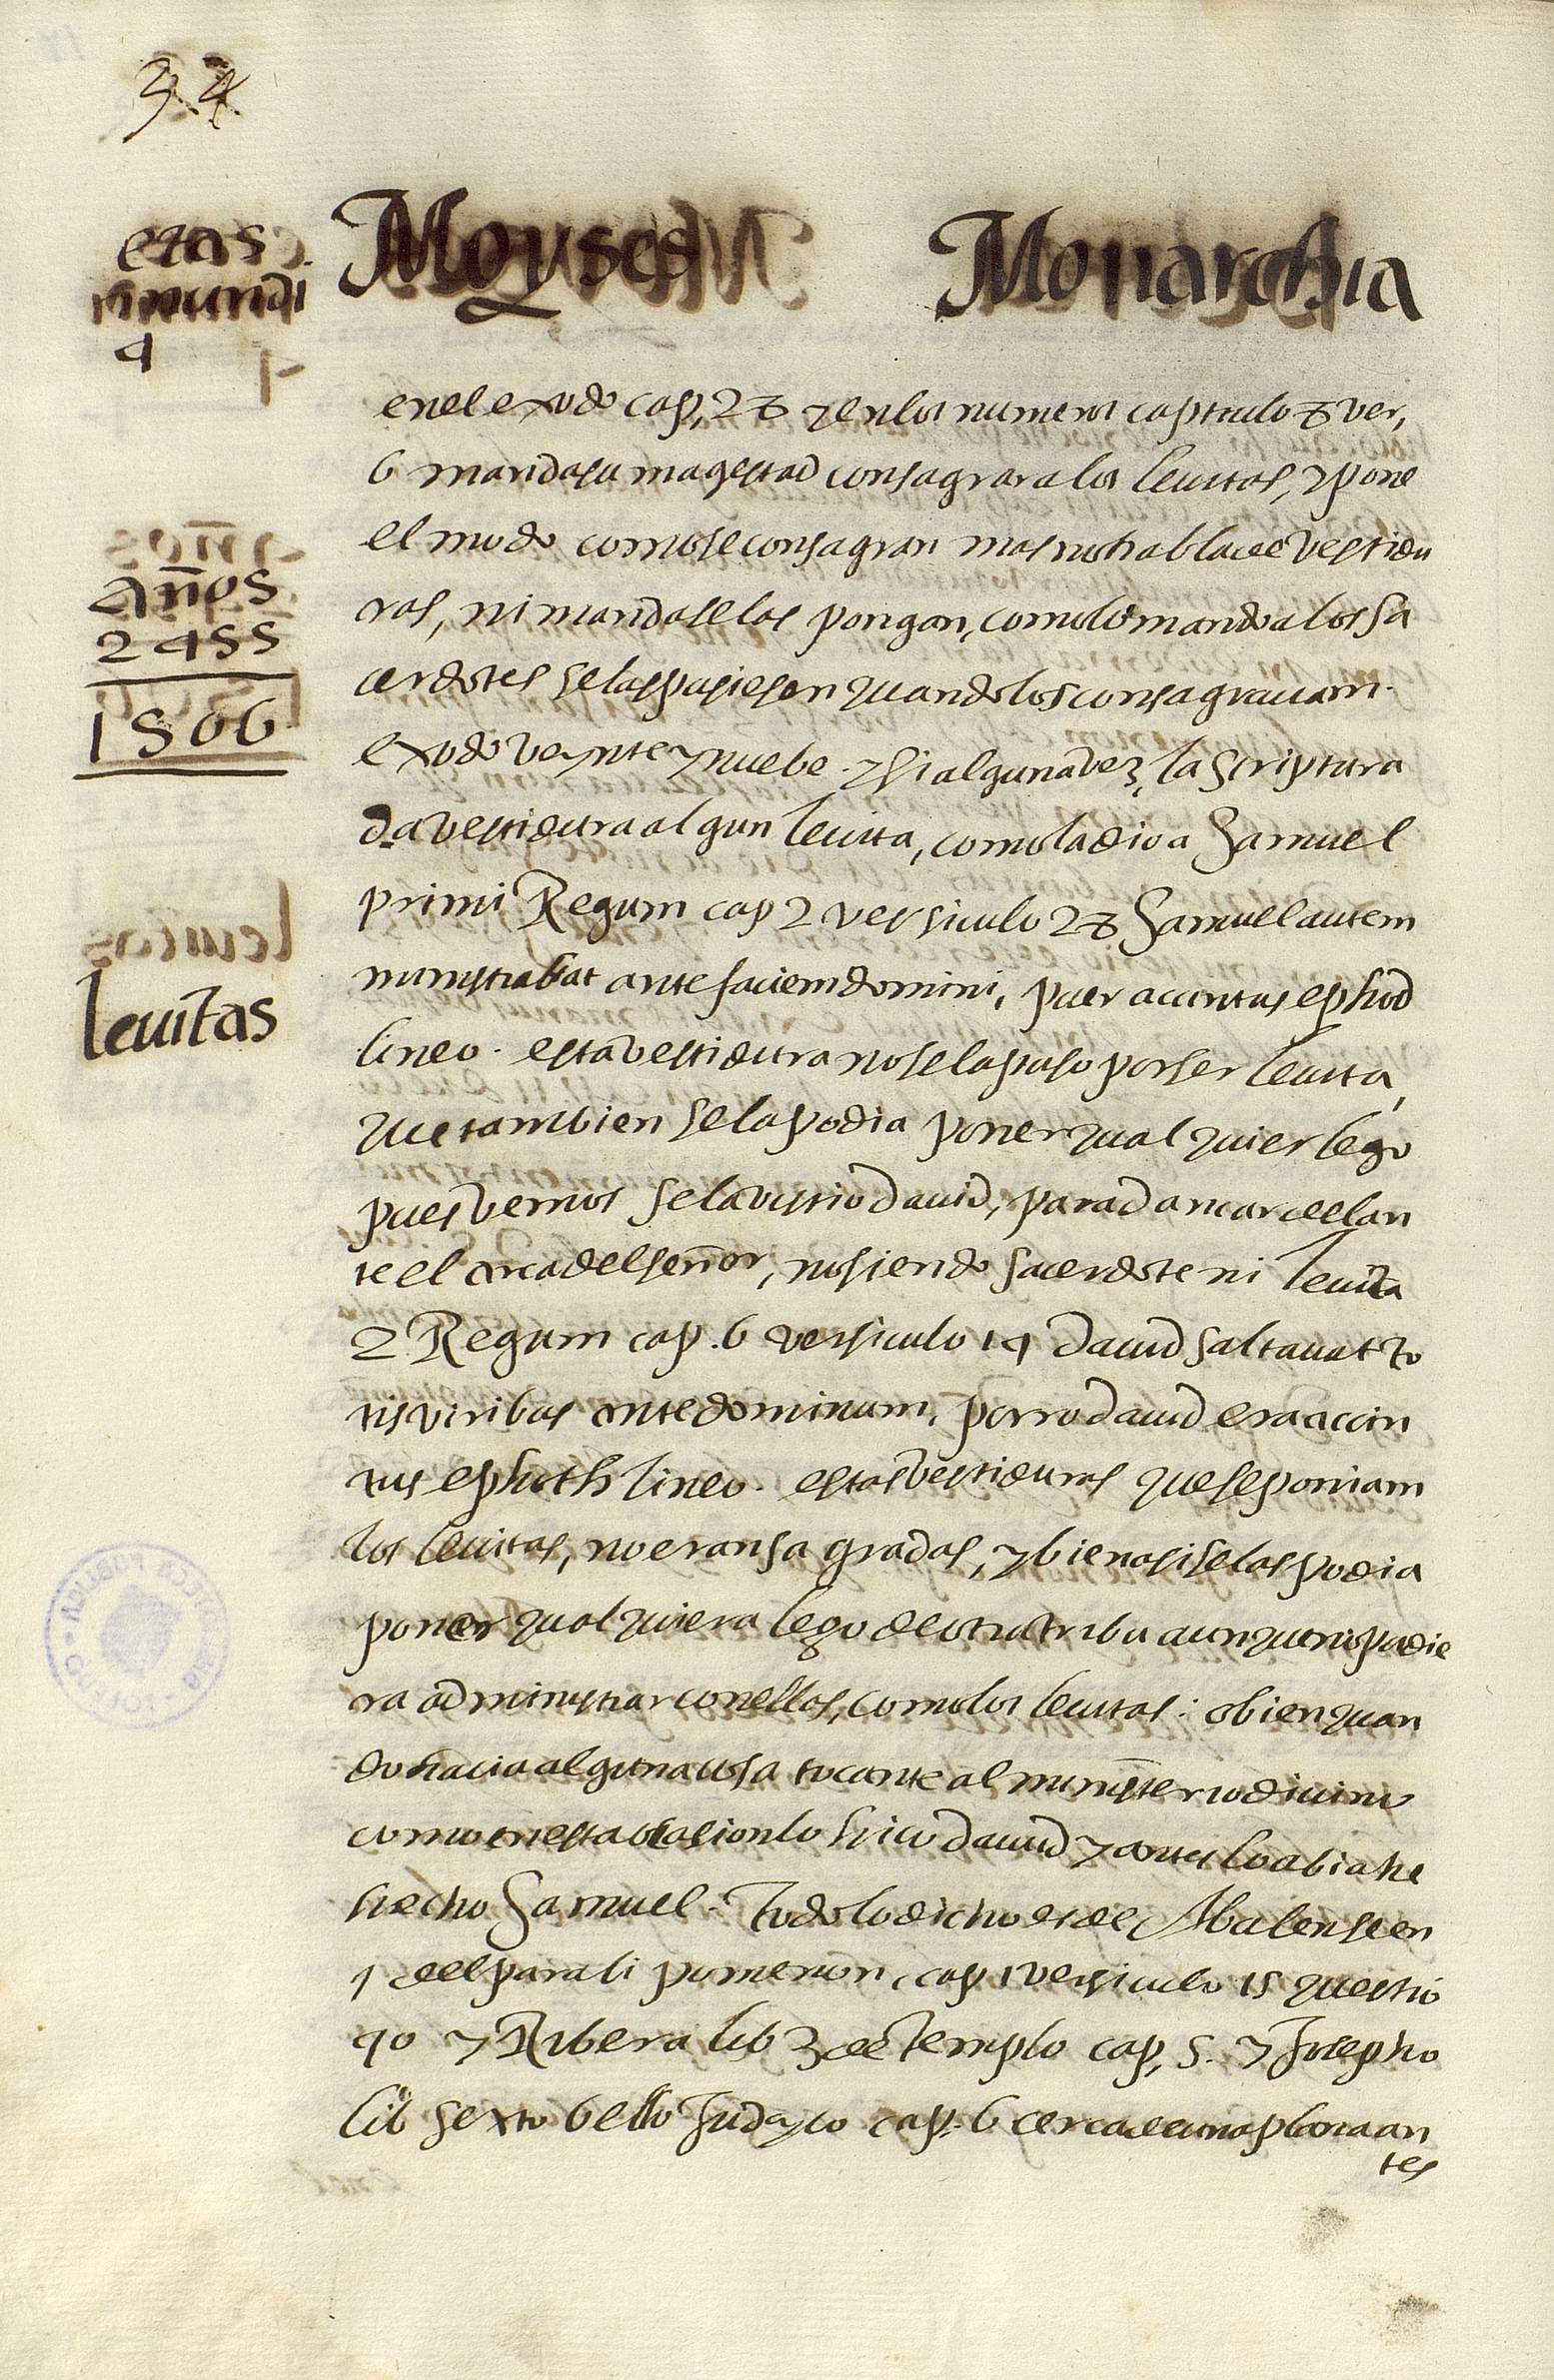 34
etas
mundi
4
Moyses Monarchia
en el exodo cap, 28 y en los numeros capitulo 8 ver,
6 manda su magestad consagrar a los leuitas, y pone
el modo como se consagran mas no habla de vestidu
ras, ni manda se las pongan, como lo mando a los sa
cerdotes se las pusiesen quando los consagrauam.
exodo veynte y nuebe. y si alguna vez, la scriptura
da vestidura al gun leuita, como la dio a Samuel
primi Regum cap 2 versiculo 28 Samuel autem
ministrabat ante faciem domini, puer accintus ephod
lineo. esta vestidura no se la puso por ser leuita,
que tambien se la podia poner qual quier lego
pues vemos se la vistio dauid, para dancar delan
te el arca del señor, no siendo sacerdote ni leuita
2 Regum cap. 6 versiculo 14 dauid saltauat to
tis viribus ante dominum, porro dauid era accin
tus ephoth lineo. estas vestiduras que se poniam
los leuitas, no eran sa gradas, y bien asi se las podia
poner qual quiera lego de otra tribu aunque no pudie
ra administrar con ellas, como los leuitas: o bien quan
do hacia alguna cosa tocante al ministerio diuino
como en esta ocasion lo hico dauid y antes lo abia he
hecho Samuel. Todo lo dicho es de Abulense en
1 del parali pomenon, cap 1 versiculo 15 questio
40 y Ribera lib 3 de templo cap, 5. y Josepho
lib sexto bello Judayco cap. 6 cerca de una plana an
tes
años
2455
1506
leuitas